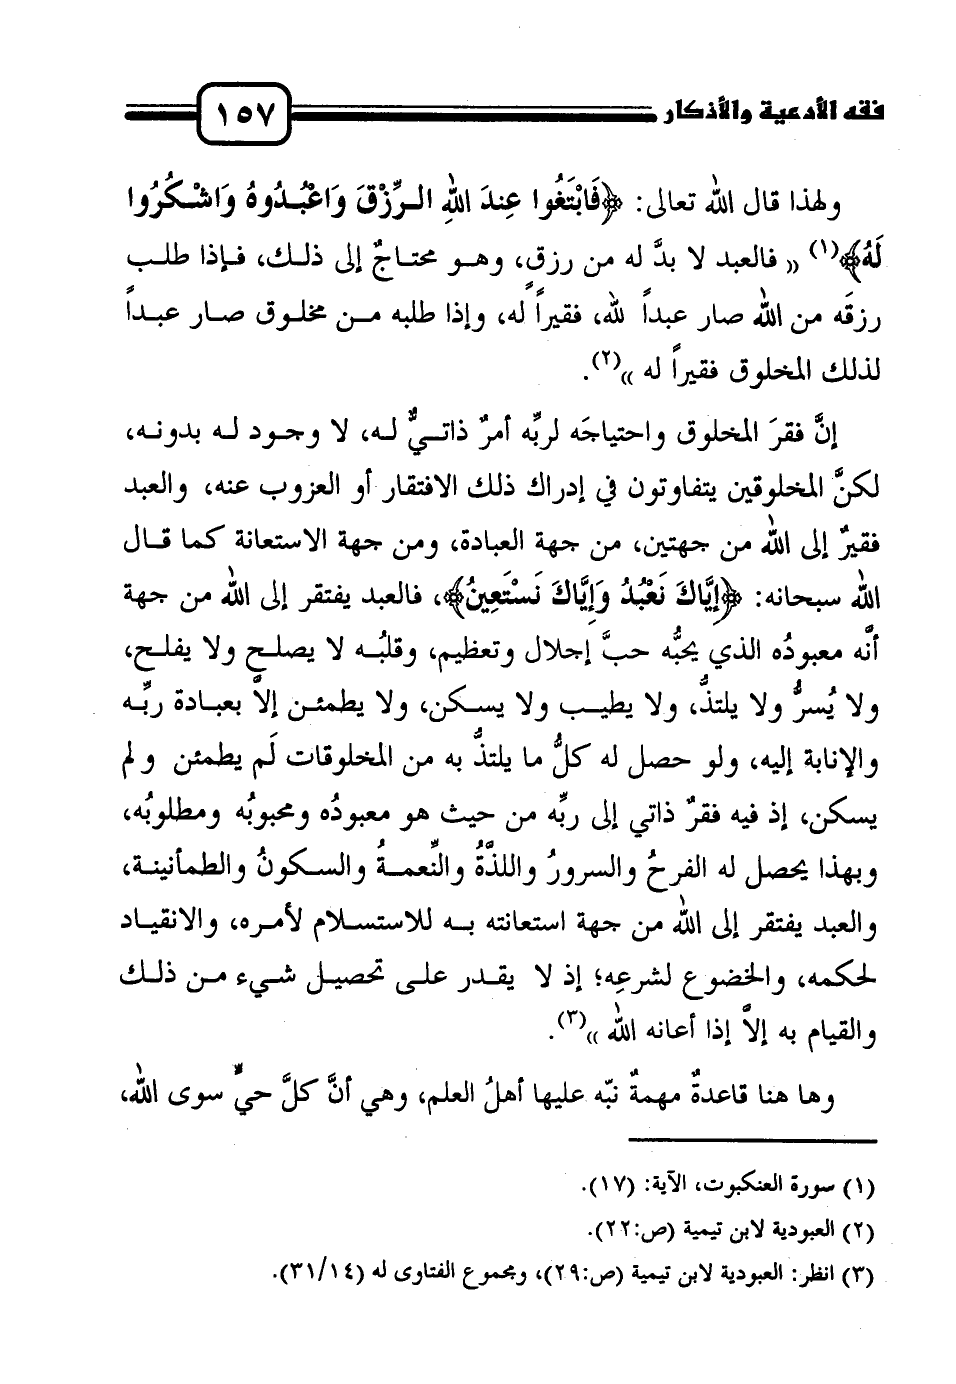 فقه الأدعية والأذكار
١٥٧
ولهذا قال الله تعالى: ﴿فَابْتَغُوا عِندَ اللهِ الرِّزْقَ وَاعْبُدُوهُ وَاشْكُرُوا
لَهُ﴾(١) « فالعبد لا بدَّ له من رزق، وهو محتاجٌ إلى ذلك، فإذا طلب
رزقَه من الله صار عبداً لله، فقيراً له، وإذا طلبه من مخلوق صار عبداً
لذلك المخلوق فقيراً له »(٢).
إنَّ فقرَ المخلوق واحتياجَه لربِّه أمرٌ ذاتيٌّ له، لا وجود له بدونه،
لكنَّ المخلوقين يتفاوتون في إدراك ذلك الافتقار أو العزوب عنه، والعبد
فقيرٌ إلى الله من جهتين، من جهة العبادة، ومن جهة الاستعانة كما قال
الله سبحانه: ﴿إِيَّاكَ نَعْبُدُ وَإِيَّاكَ نَسْتَعِينُ﴾، فالعبد يفتقر إلى الله من جهة
أنَّه معبودُه الذي يحبُّه حبَّ إجلال وتعظيم، وقلبُه لا يصلح ولا يفلح،
ولا يُسرُّ ولا يلتذُّ، ولا يطيب ولا يسكن، ولا يطمئن إلاَّ بعبادة ربِّه
والإنابة إليه، ولو حصل له كلُّ ما يلتذُّ به من المخلوقات لَم يطمئن ولم
يسكن، إذ فيه فقرٌ ذاتي إلى ربِّه من حيث هو معبودُه ومحبوبُه ومطلوبُه،
وبهذا يحصل له الفرحُ والسرورُ واللذَّةُ والنِّعمةُ والسكونُ والطمأنينة،
والعبد يفتقر إلى الله من جهة استعانته به للاستسلام لأمره، والانقياد
لحكمه، والخضوع لشرعِه؛ إذ لا يقدر على تحصيل شيء من ذلك
والقيام به إلاَّ إذا أعانه الله »(٣).
وها هنا قاعدةٌ مهمةٌ نبّه عليها أهلُ العلم، وهي أنَّ كلَّ حيٍّ سوى الله،
(١) سورة العنكبوت، الآية: (١٧).
(٢) العبودية لابن تيمية (ص:٢٢).
(٣) انظر: العبودية لابن تيمية (ص:٢٩)، ومجموع الفتاوى له (٣١/١٤).